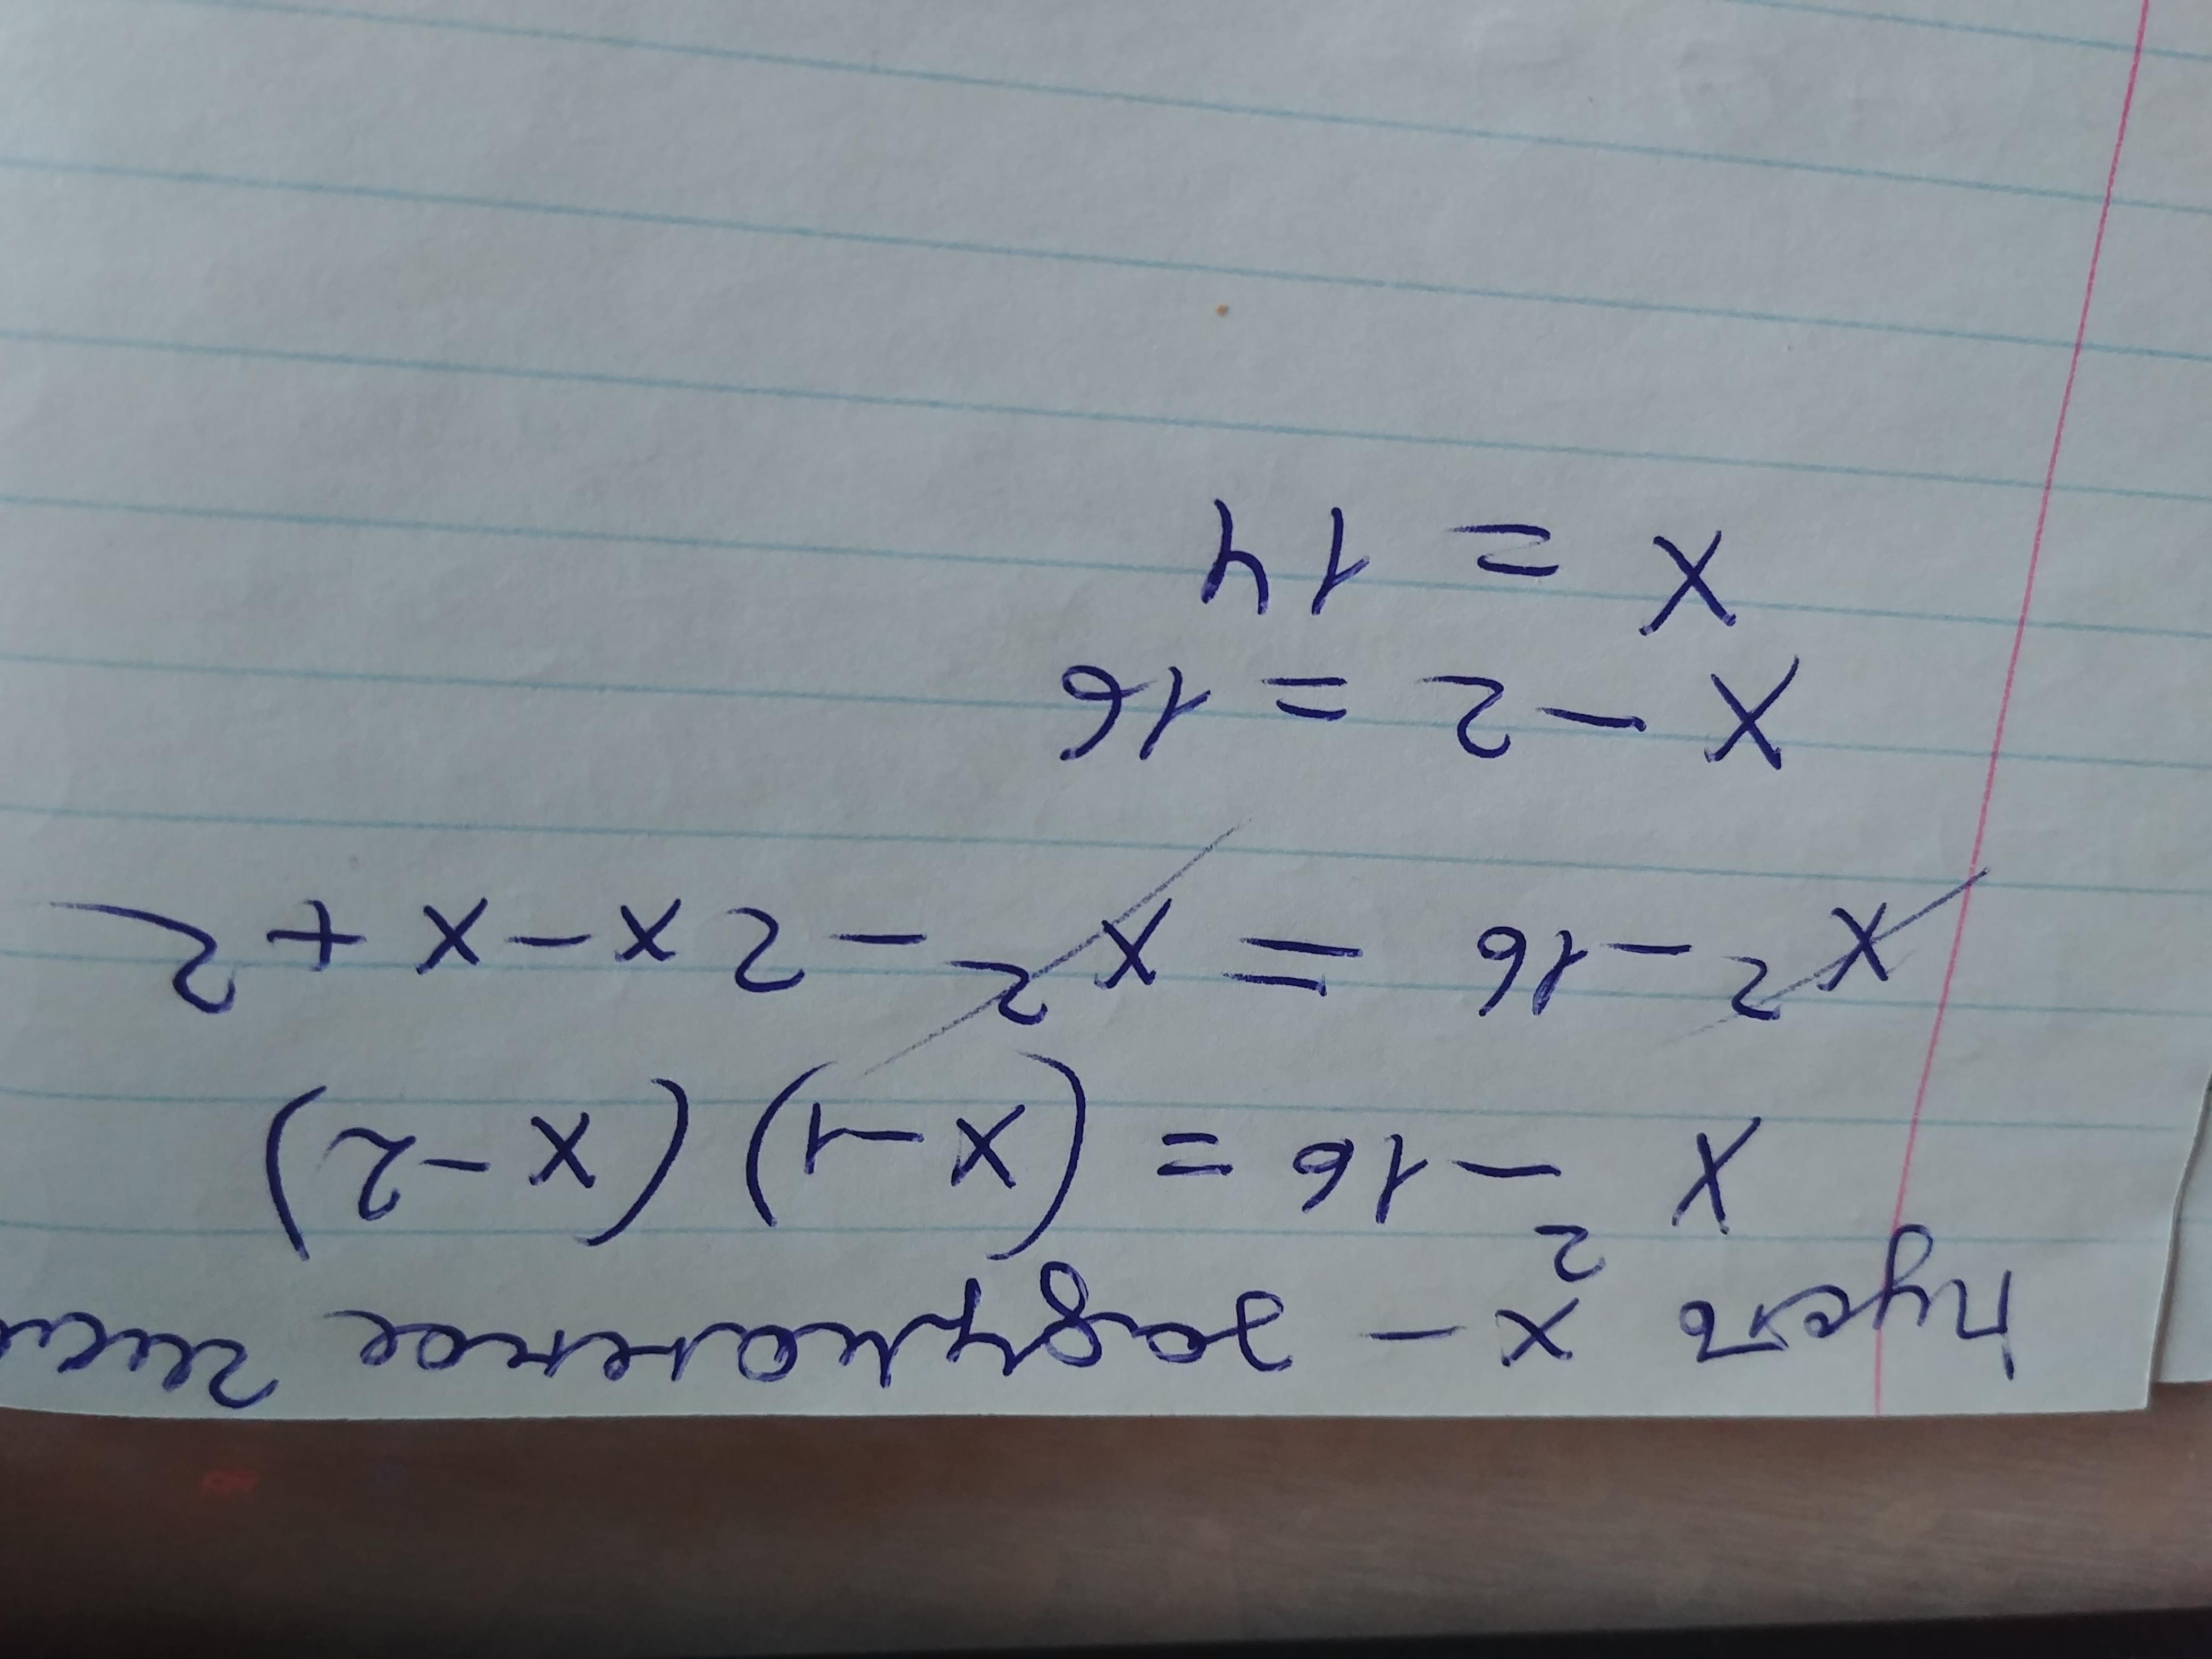 Пусть x - задуманное число
x² - 16 = (x-1)(x-2)
x² - 16 = x² - 2x - x + 2
x - 2 = 16
x = 14